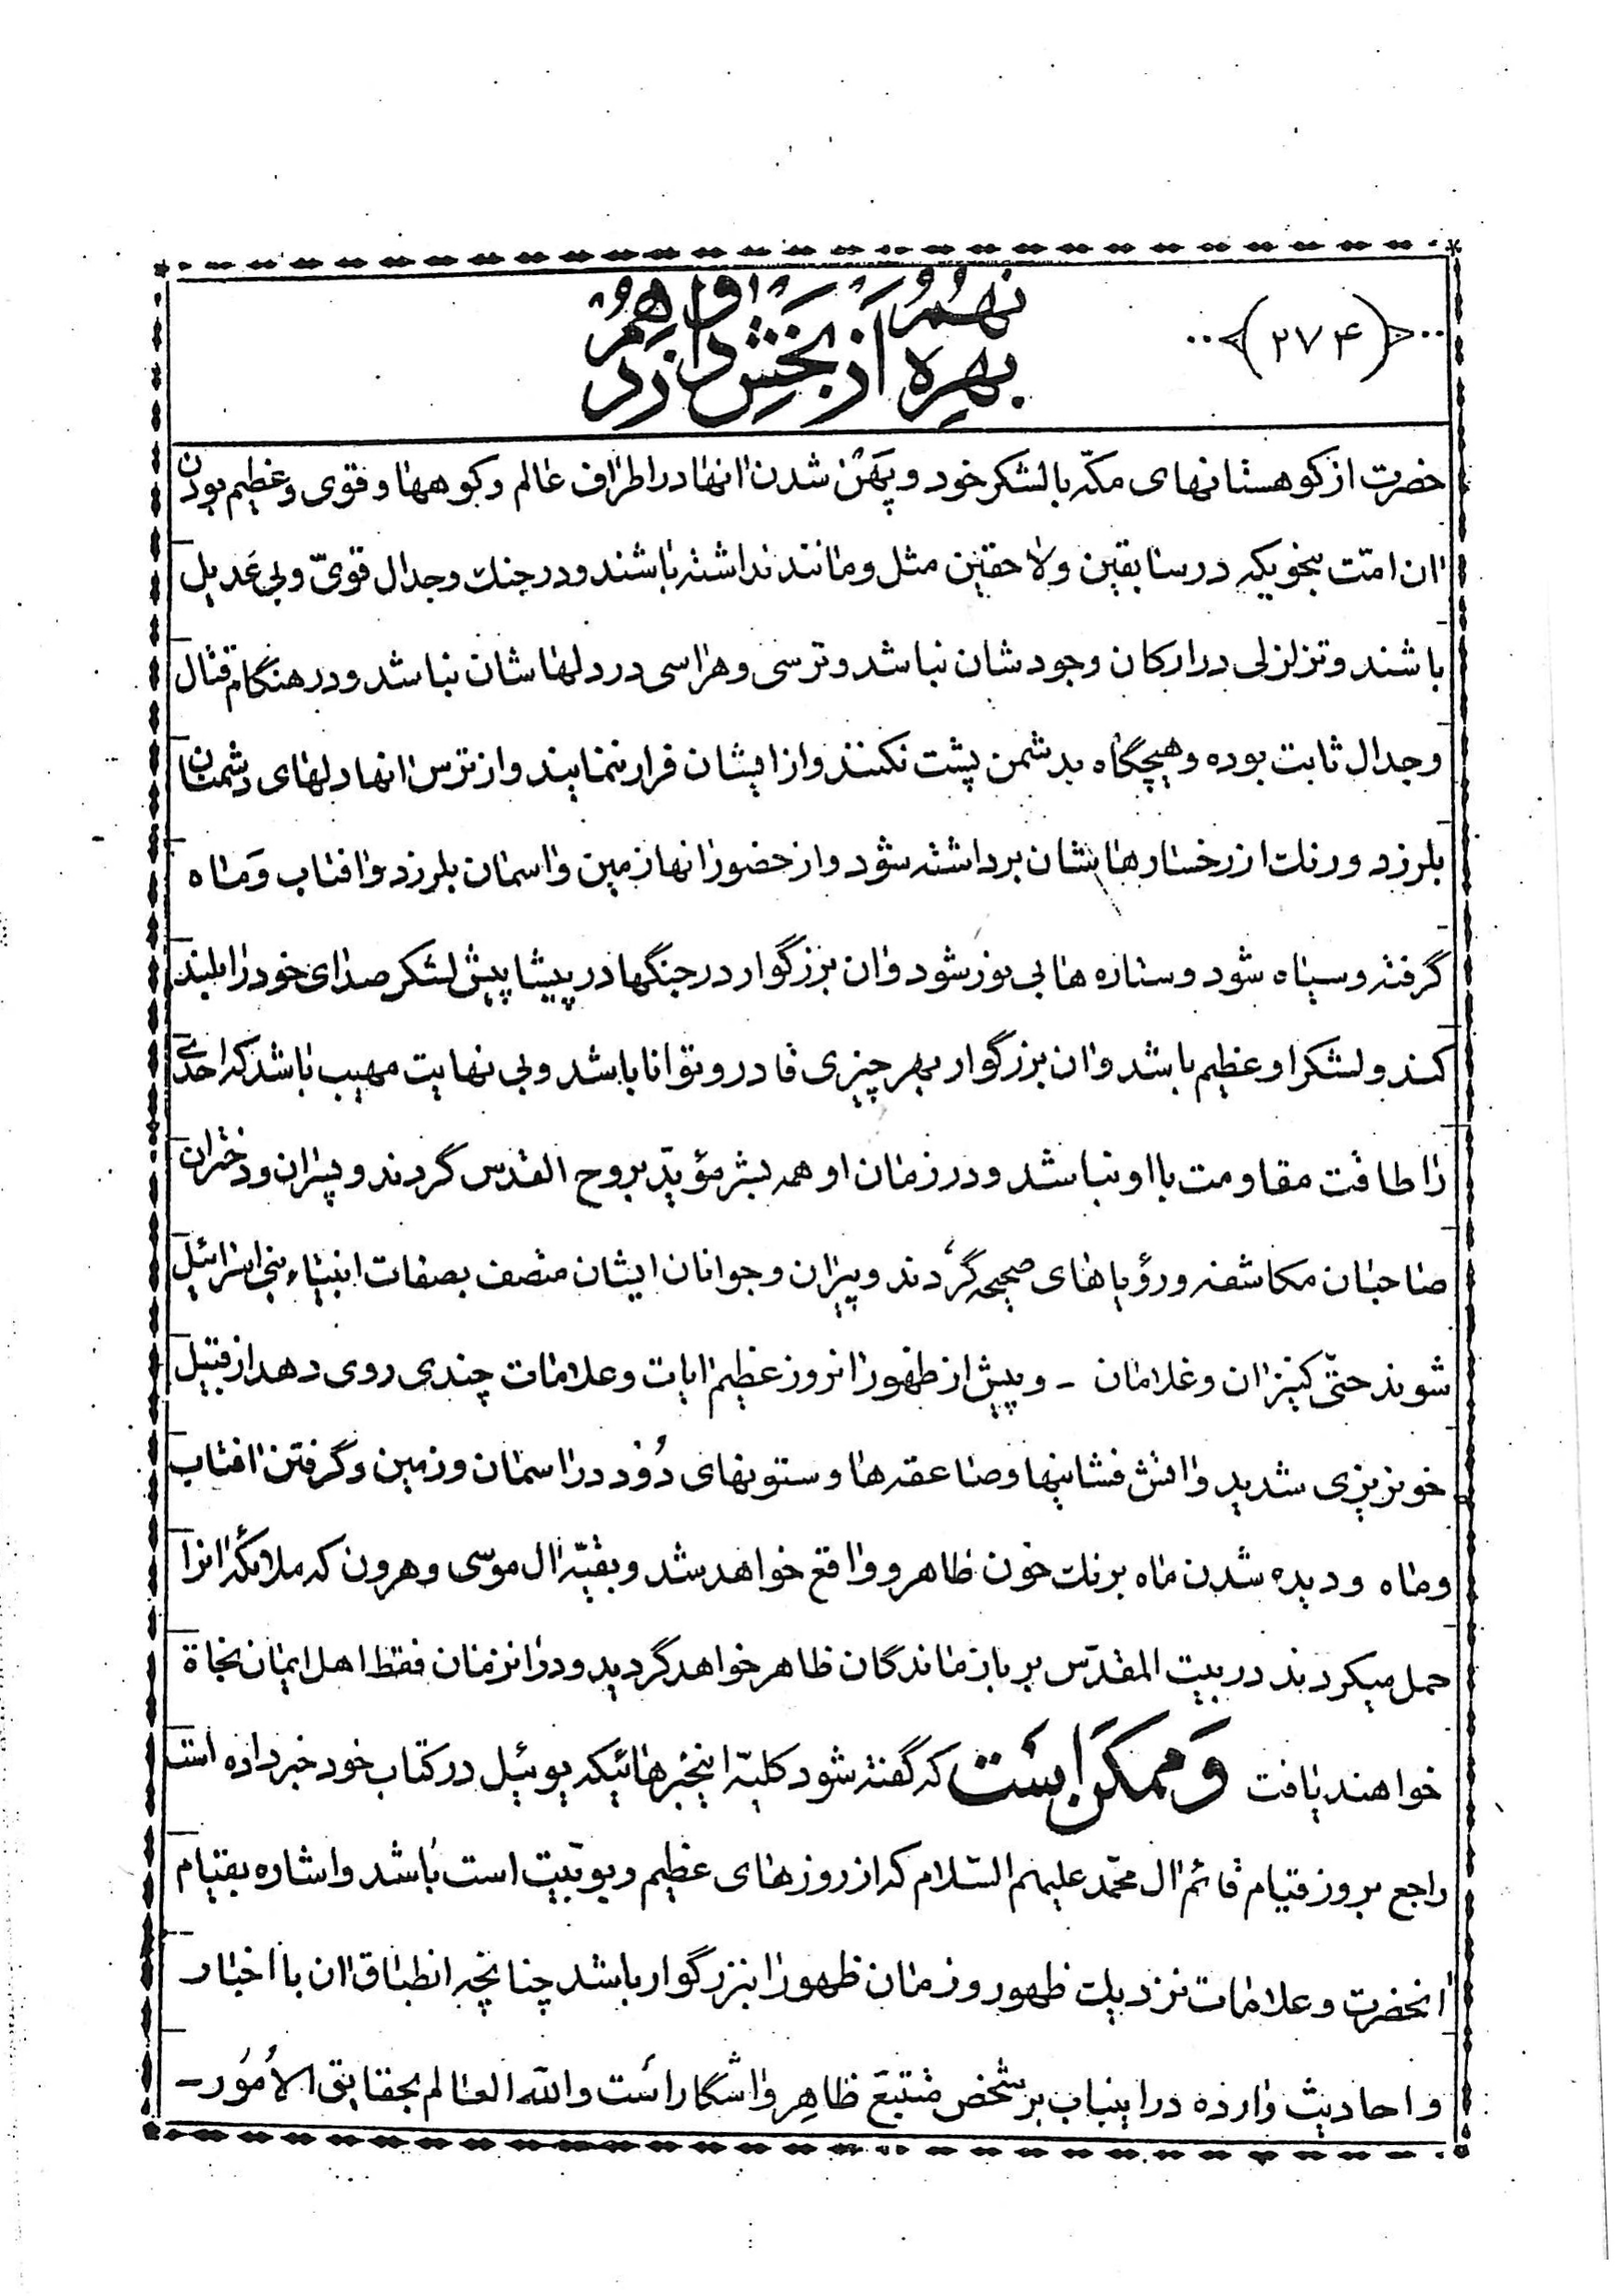 ﴿۲۷۴﴾
بهره نهم از بخش دوازدهم
حضرت از کوهستانهای مکّه با لشکر خود و پهن شدن انها در اطراف عالم و کوهها و قوی و عظیم بودن
ان امت بنحویکه در سابقین و لاحقین مثل و مانند نداشته باشند و در جنك و جدال قویّ و بی عدیل
باشند و تزلزلی در ارکان وجودشان نباشد و ترسی و هراسی در دلهاشان نباشد و در هنگام قتال
و جدال ثابت بوده و هیچگاه بدشمن پشت نکنند و از ایشان فرار ننمایند و از ترس انها دلهای دشمنان
بلرزد و رنك از رخسارهایشان برداشته شود و از حضور انها زمین و اسمان بلرزد و افتاب و ماه
گرفته و سیاه شود و ستاره ها بی نور شود و ان بزرگوار در جنگها در پیشاپیش لشکر صدای خود را بلند
کند و لشکر او عظیم باشد و ان بزرگوار بهر چیزی قادر و توانا باشد و بی نهایت مهیب باشد که احدی
را طاقت مقاومت با او نباشد و در زمان او همه بشر مؤیّد بروح القدس گردند و پسران و دختران
صاحبان مکاشفه و رؤیاهای صحیحه گردند و پیران و جوانان ایشان متصف بصفات انبیاء بنی اسرائیل
شوند حتّی کنیزان و غلامان - و پیش از ظهور انروز عظیم ایات و علامات چندی روی دهد از قبیل
خونریزی شدید و اتش فشانیها و صاعقه ها و ستونهای دُود در اسمان و زمین و گرفتن افتاب
و ماه و دیده شدن ماه برنك خون ظاهر و واقع خواهد شد و بقیّه ال موسی و هرون که ملائکه انرا
حمل میکردند در بیت المقدّس بر بازماندگان ظاهر خواهد گردید و در انزمان فقط اهل ایمان نجاة
خواهند یافت وَ ممکن است که گفته شود کلیّه اینخبرهائیکه یوئیل در کتاب خود خبر داده است
راجع بروز قیام قائم ال محمّد علیهم السّلام که از روزهای عظیم ربوبیّت است باشد و اشاره بقیام
انحضرت و علامات نزدیك ظهور و زمان ظهور انبزرگوار باشد چنانچه انطباق ان با اخبار
و احادیث وارده در اینباب بر شخص متتبع ظاهر و اشگار است و الله العالم بحقایق الامور -